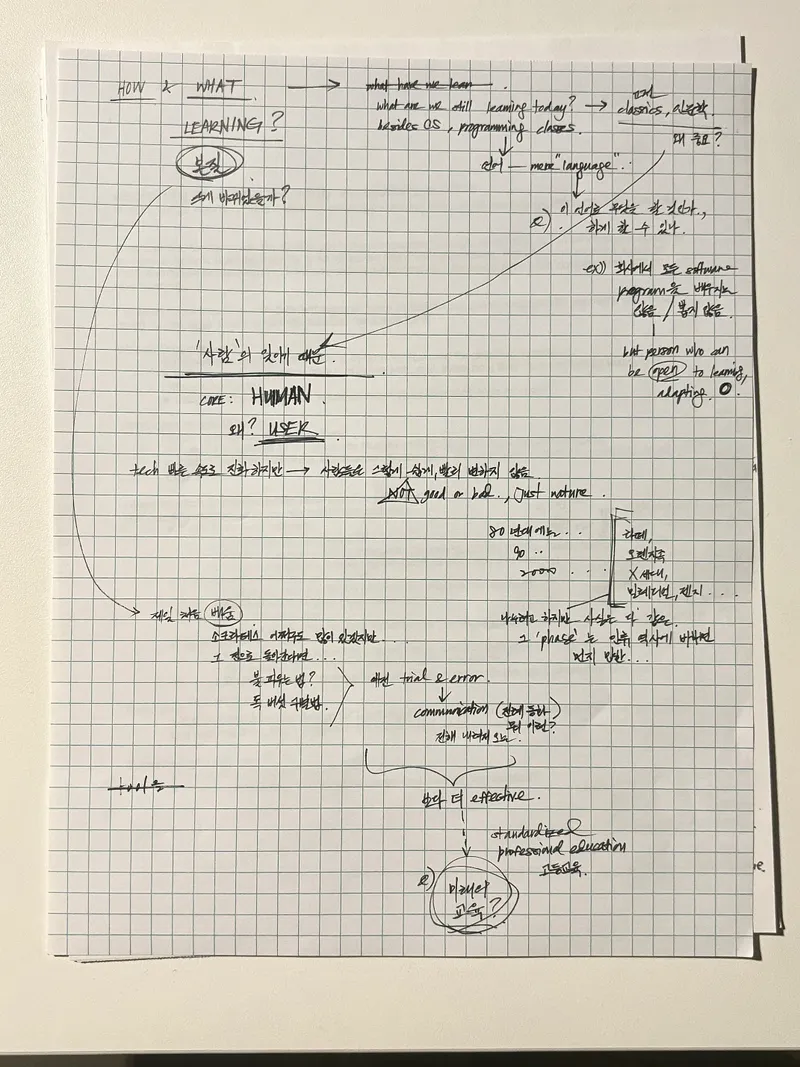 HOW & WHAT
LEARNING?
본질
크게 바뀌었을까?
what have we learn
what are we still learning today?
besides OS, programming classes.
고전
classics, 인문학.
왜 중요?
언어 — mere "language".
Q) 이 언어로 무엇을 할 것인가,
하게 할 수 있나.
ex)) 회사에서 모든 software
program을 배우지도
않음 / 뽑지 않음.
but person who can
be open to learning,
adapting.
'사람'의 일이기 때문.
CORE: HUMAN.
왜? USER.
tech 빠른 속도로 진화하지만 → 사람들은 그렇게 쉽게, 빨리 변하지 않음.
NOT good or bad., Just nature.
80년대에도...
90 ..
2000 ....
라떼,
오렌지족
X세대,
밀레니얼, 젠지....
나누려고 하지만 사실은 다 같은.
그 'phase'는 인류 역사에 비하면
먼지 만한...
제일 처음 배움
소크라테스 어쩌구도 많이 있겠지만....
그 전으로 돌아간다면...
불 피우는 법?
독 버섯 구별법.
trial & error.
communication
뭐 이런?
전해 내려져 오는.
보다 더 effective.
standardized
professional education
고등교육.
Q) 미래의
교육?